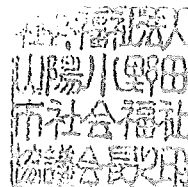 社会福祉法人
山陽小野田
市社会福祉
協議会長之印